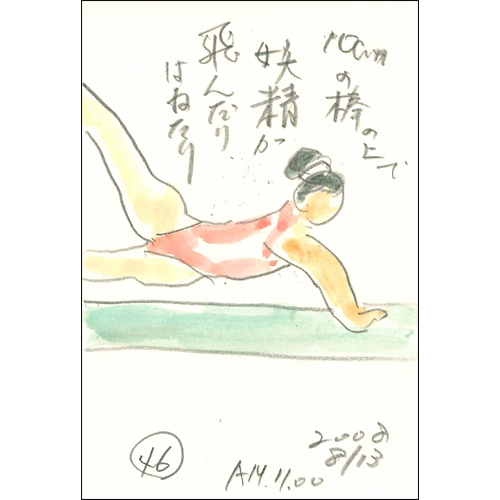 10cmの棒の上で
妖精が
飛んだり
はねたり
2008
8/13
46
AM.11.00